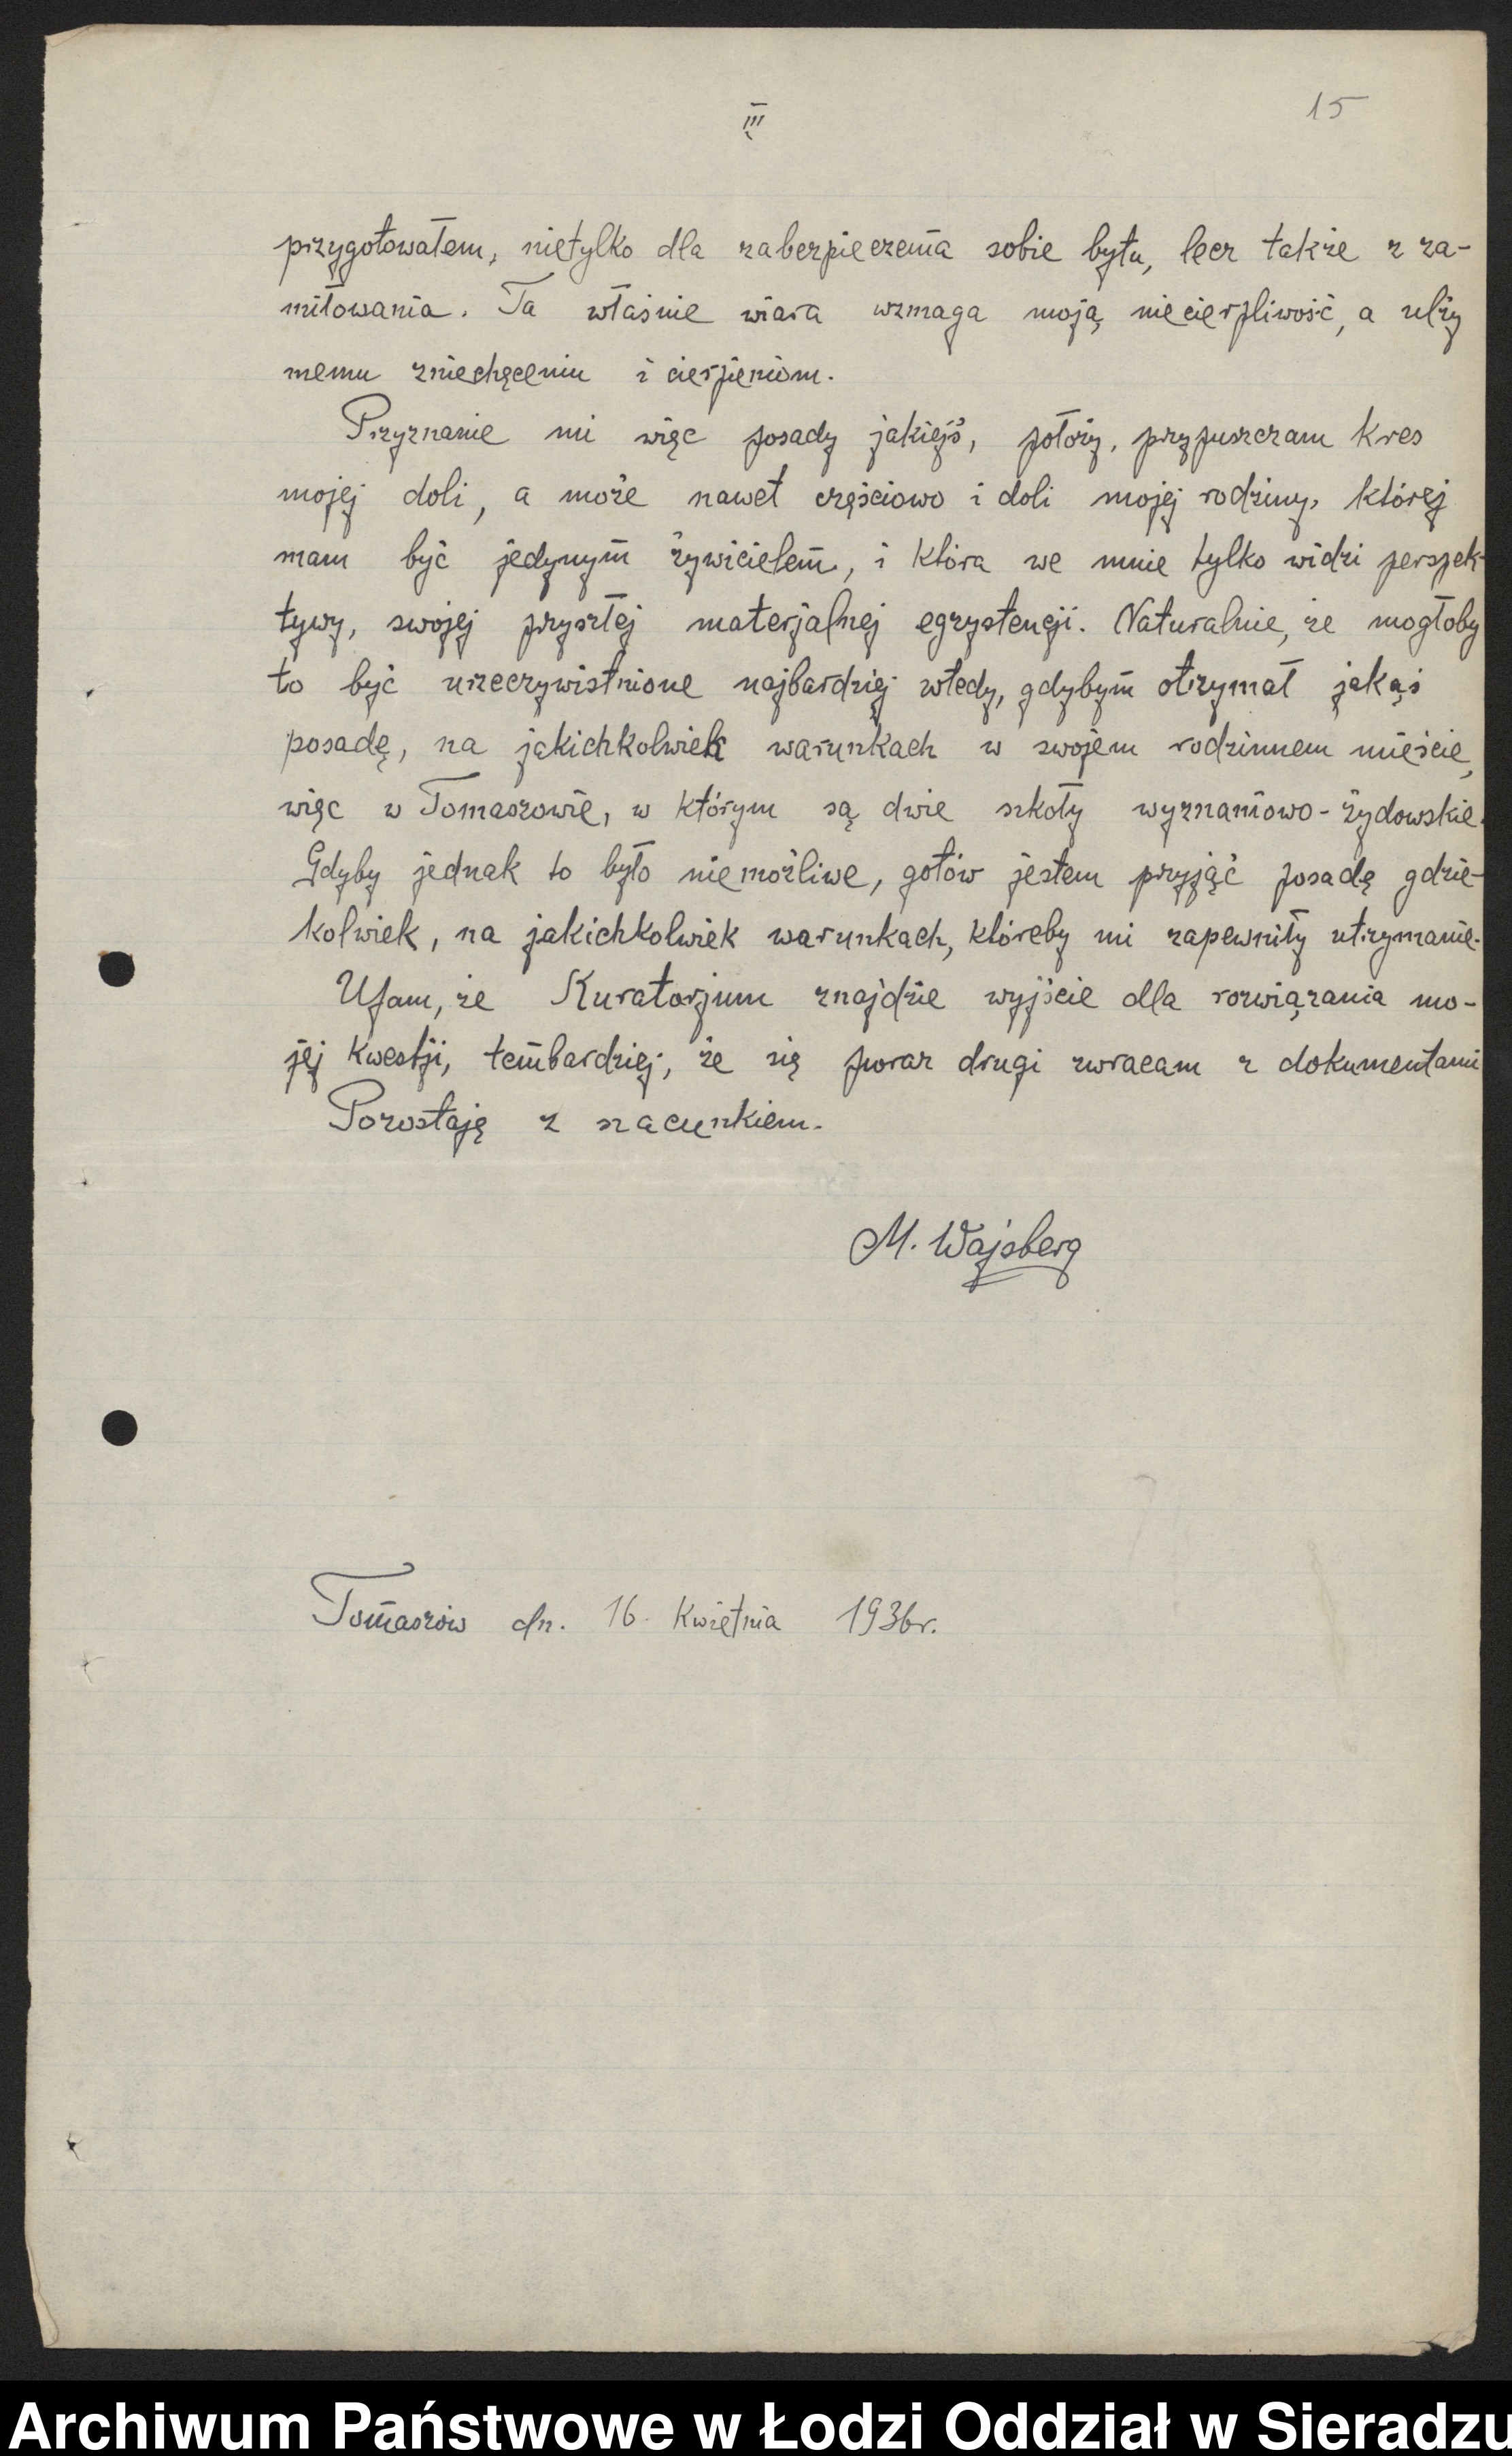 III
15
przygotowałem, nietylko dla zabezpieczenia sobie bytu, lecz także z za-
miłowania. Ta właśnie wiara wzmaga moją niecierpliwość, a ulży
memu zniechęceniu i cierpieniom.
Przyznanie mi więc posady jakiejś, położy, przypuszczam kres
mojej doli, a może nawet częściowo i doli mojej rodziny, której
mam być jedynym żywicielem, i która we mnie tylko widzi perspek-
tywy, swojej przyszłej materjalnej egzystencji. Naturalnie, że mogłoby
to być urzeczywistnione najbardziej wtedy, gdybym otrzymał jakąś
posadę, na jakichkolwiek warunkach w swojem rodzinnem mieście,
więc w Tomaszowie, w którym są dwie szkoły wyznaniowo-żydowskie.
Gdyby jednak to było niemożliwe, gotów jestem przyjąć posadę gdzie-
kolwiek, na jakichkolwiek warunkach, któreby mi zapewniły utrzymanie.
Ufam, że Kuratorjum znajdzie wyjście dla rozwiązania mo-
jej kwestji, tembardziej, że się poraz drugi zwracam z dokumentami
Pozostaję z szacunkiem.
M. Wajsberg
Tomaszów dn. 16. Kwietnia 1936r.
Archiwum Państwowe w Łodzi Oddział w Sieradzu